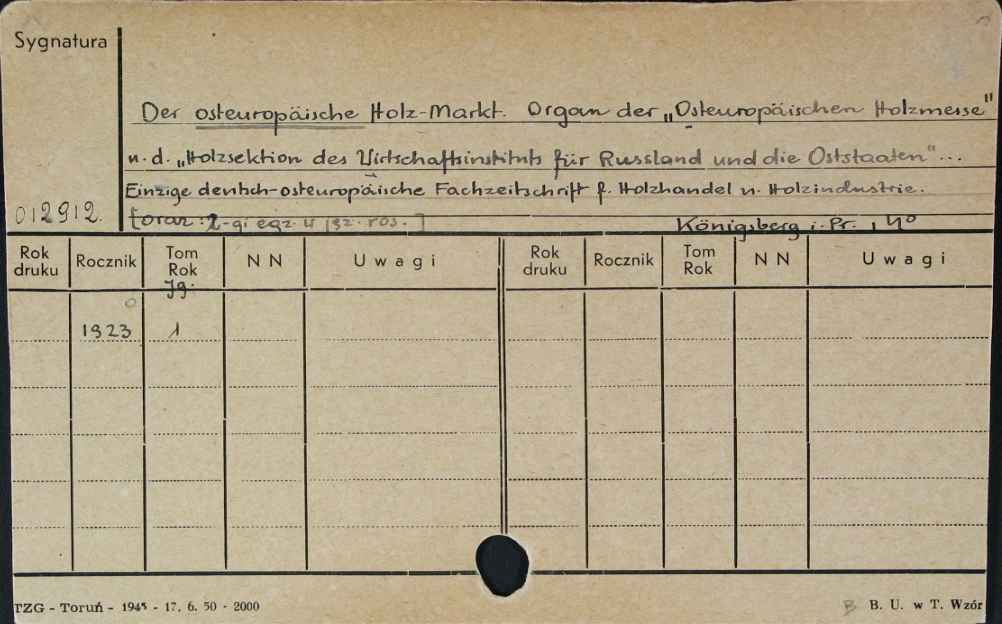 Sygnatura
Der osteuropäische Holz-Markt. Organ der „Osteuropäischen Holzmesse"
u. d. „Holzsektion des Wirtschaftsinstituts für Russland und die Oststaaten"...
Einzige deutsch-osteuropäische Fachzeitschrift f. Holzhandel u. Holzindustrie.
012912. [oraz: 2-gi egz. w jęz. ros.] Königsberg i. Pr. , 4º
Rok druku Rocznik Tom Rok NN Uwagi Rok druku Rocznik Tom Rok NN Uwagi
Jg.
1923 1
TZG - Toruń - 1945 - 17. 6. 50 - 2000 B B. U. w T. Wzór